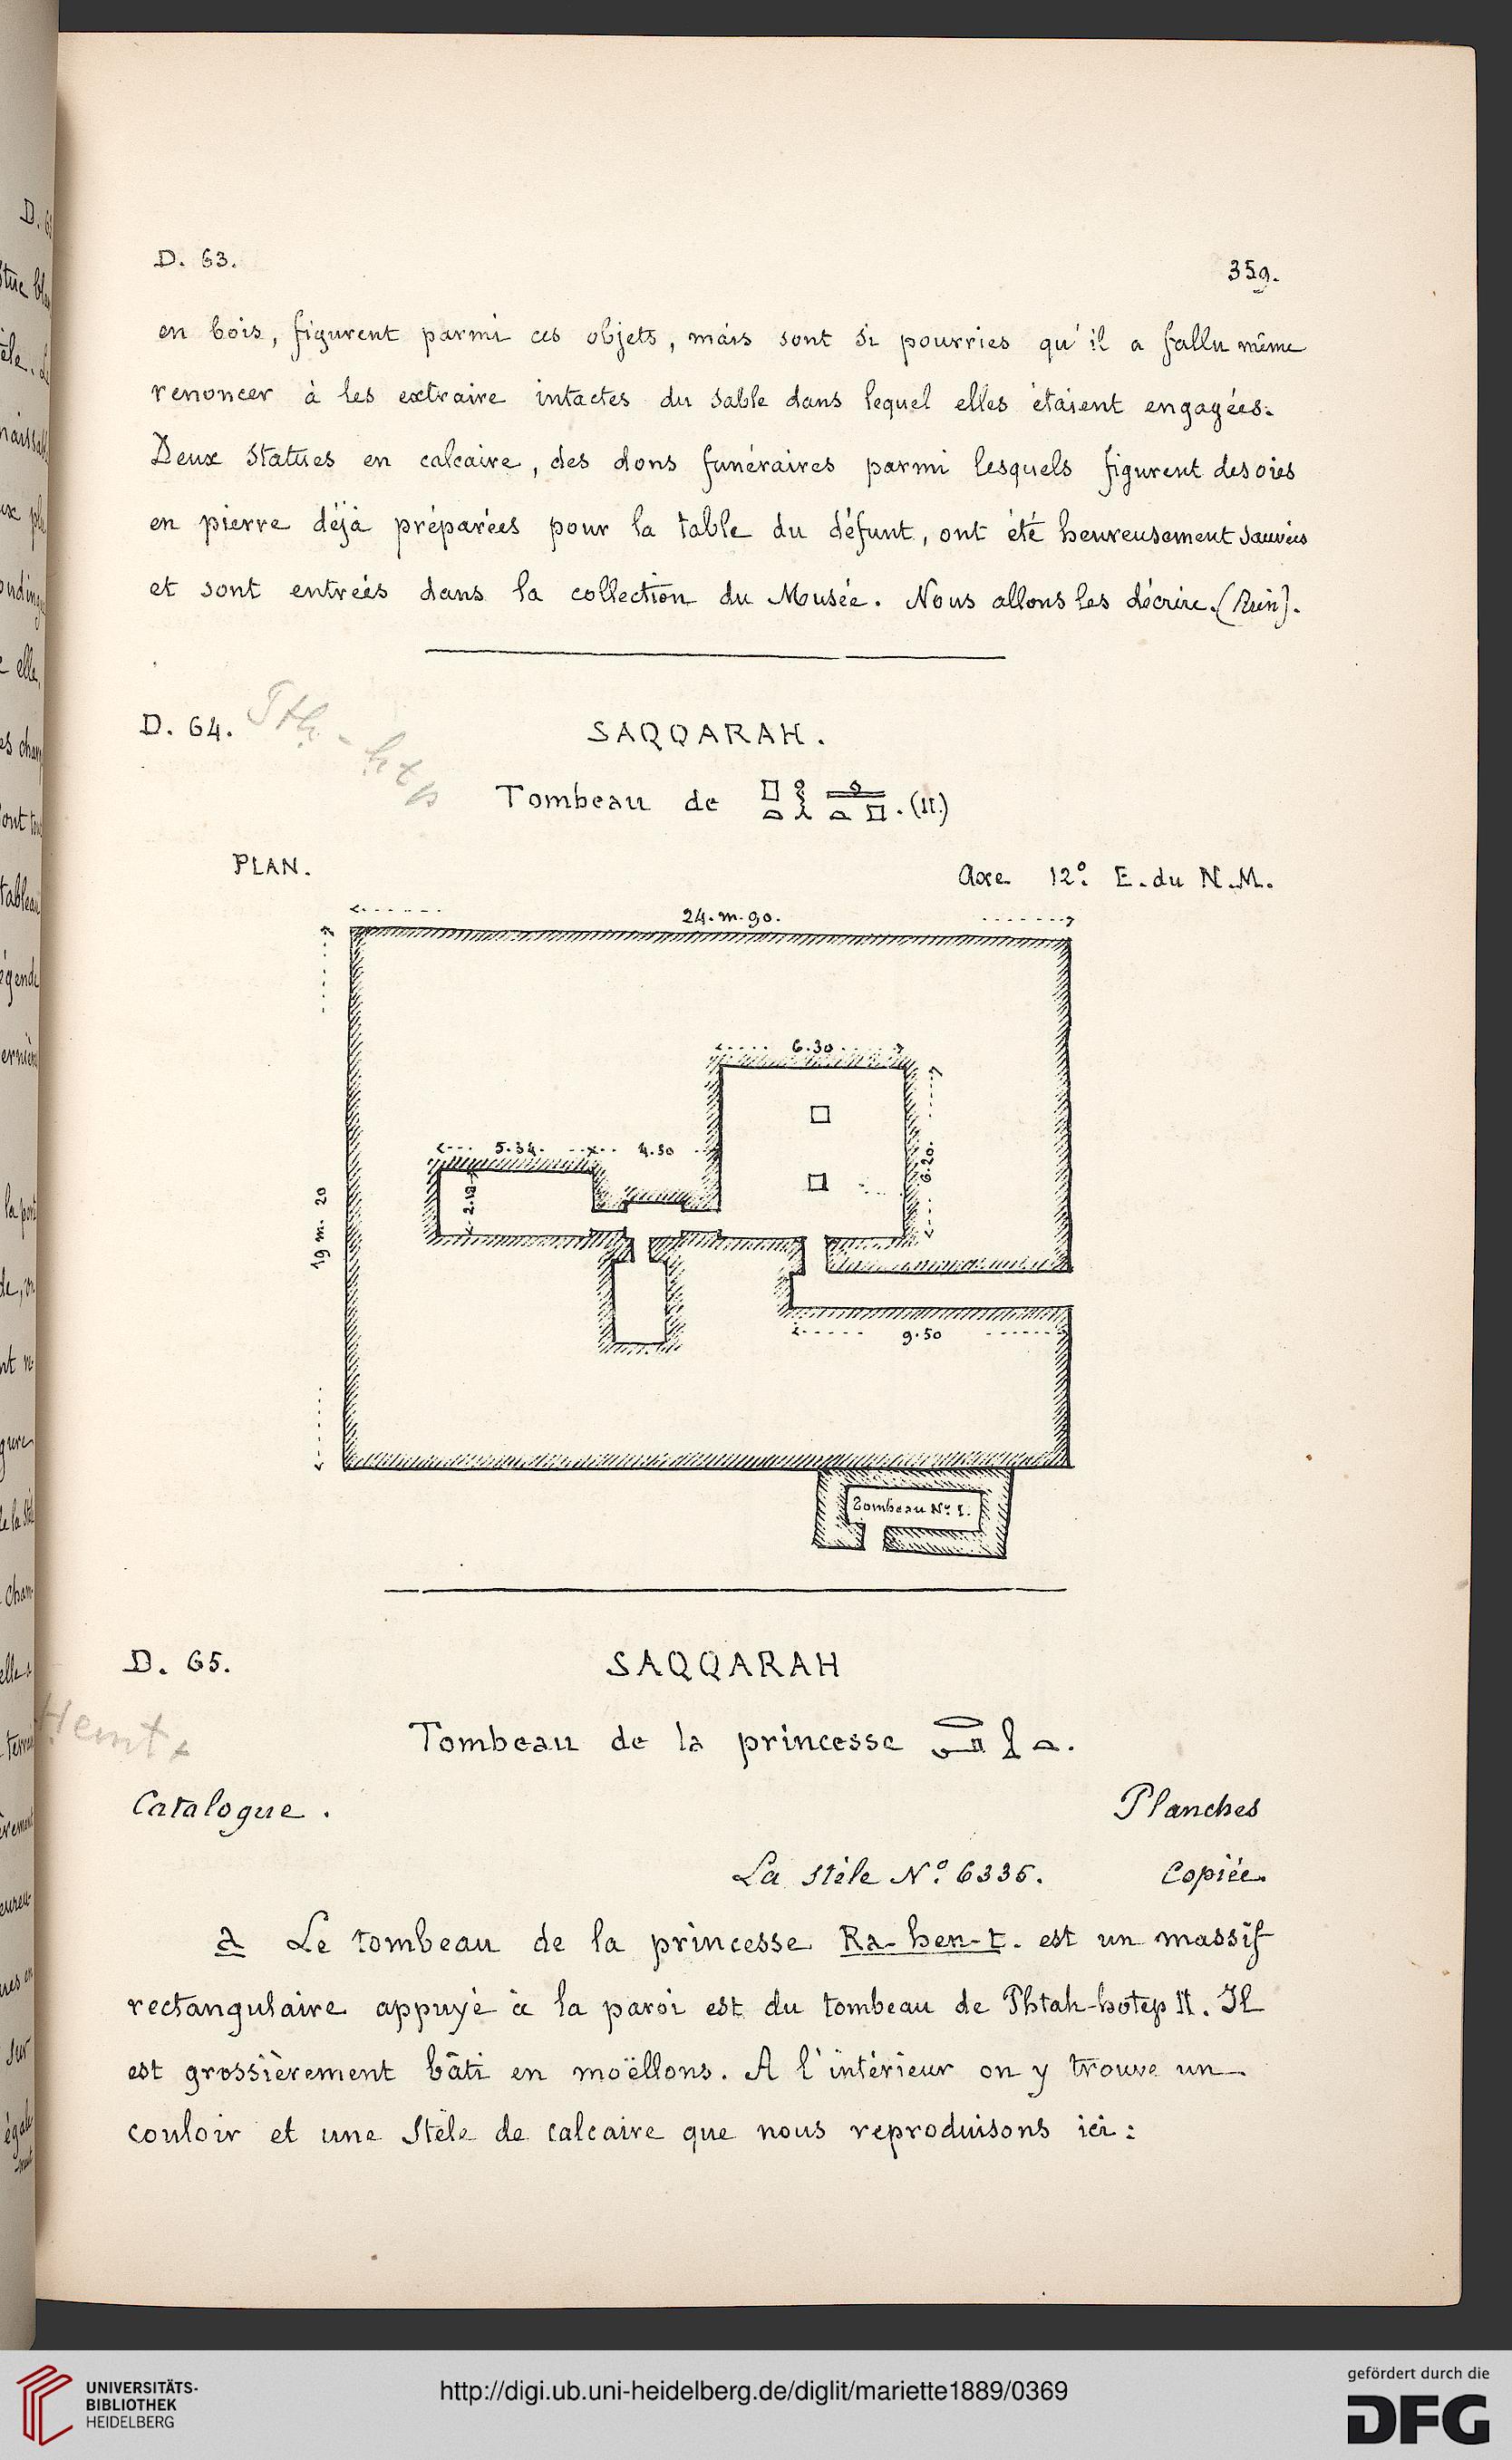 D. 63.
359.
en bois, figurent parmi ces objets, mais sont si pourries qu'il a fallu même
renoncer à les extraire intactes du sable dans lequel elles étaient engagées.
Deux statues en calcaire, des dons funéraires parmi lesquels figurent des oies
en pierre déjà préparées pour la table du défunt, ont été heureusement sauvées
et sont entrées dans la collection du Musée. Nous allons les décrire. (Rien).
D. 64.
SAQQARAH.
Tombeau de 𓊪𓏏𓎛𓊵𓏏𓊪. (II.)
PLAN.
Axe 12° E. du N.M.
24.m.90.
6.30
5.34. 4.50
2.12
6.20.
19 m. 20
9.50
Tombeau No. I.
D. 65.
SAQQARAH
Tombeau de la princesse 𓂋𓂝𓍛𓏏.
Catalogue.
Planches
La stèle No. 6335.
Copiée.
a Le tombeau de la princesse Ra-hen-t. est un massif
rectangulaire appuyé à la paroi est du tombeau de Phtah-hotep II. Il
est grossièrement bâti en moëllons. A l'intérieur on y trouve un
couloir et une Stèle de calcaire que nous reproduisons ici:
UNIVERSITÄTS-
BIBLIOTHEK
HEIDELBERG
http://digi.ub.uni-heidelberg.de/diglit/mariette1889/0369
gefördert durch die
DFG